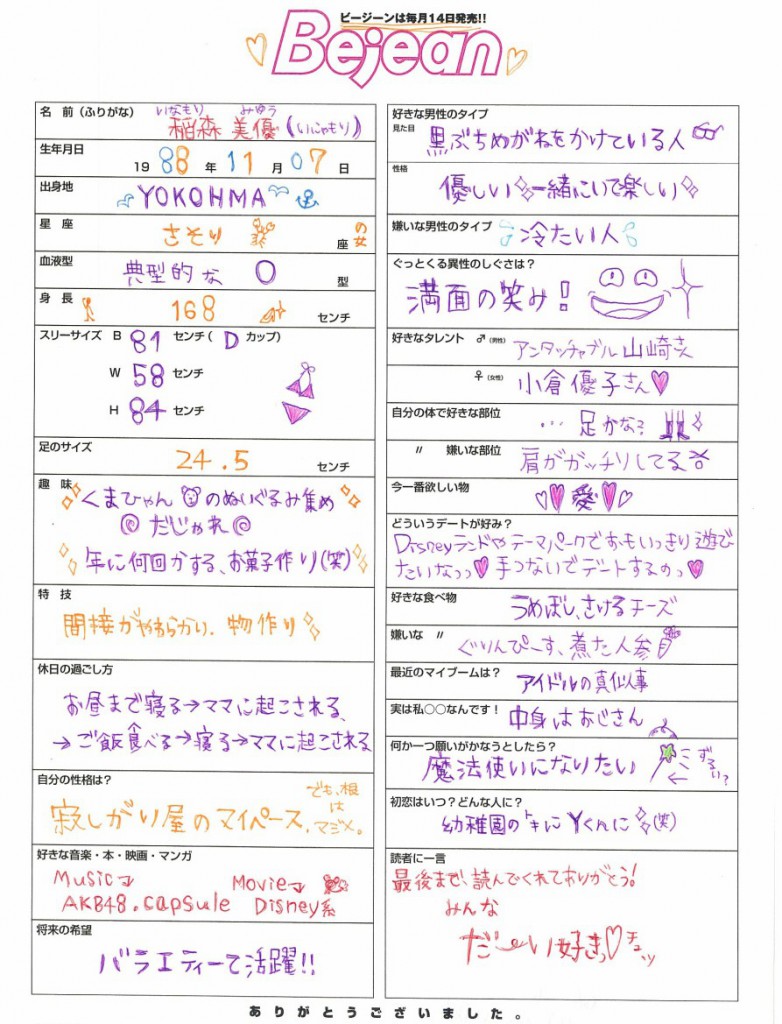 ビージーンは毎月14日発売!!
Bejean
名 前(ふりがな) いなもり みゆう
稲森 美優(いにゃもり)
生年月日
1988年11月07日
出身地
YOKOHMA
星 座
さそり 座 の女
血液型
典型的な O 型
身 長
168 センチ
スリーサイズ B 81 センチ( D カップ)
W 58 センチ
H 84 センチ
足のサイズ
24.5 センチ
趣 味
くまひゃんのぬいぐるみ集め
だじゃれ
年に何回かする、お菓子作り(笑)
特 技
間接がやわらかい、物作り
休日の過ごし方
お昼まで寝る→ママに起こされる、
→ご飯食べる→寝る→ママに起こされる
自分の性格は?
寂しがり屋のマイペース。
でも、根
は
マジメ。
好きな音楽・本・映画・マンガ
Music Movie
AKB48.capsule Disney系
将来の希望
バラエティーで活躍!!
好きな男性のタイプ
見た目
黒ぶちめがねをかけている人
性格
優しい 一緒にいて楽しい
嫌いな男性のタイプ
冷たい人
ぐっとくる異性のしぐさは?
満面の笑み!
好きなタレント ♂(男性) アンタッチャブル山崎さん
♀(女性) 小倉優子さん♥
自分の体で好きな部位
… 足かな?
〃 嫌いな部位 肩がガッチリしてる
今一番欲しい物
♡♥愛♥♡
どういうデートが好み?
Disneyランドやテーマパークでおもいっきり遊び
たいなっっ♥手つないでデートするのっ♥
好きな食べ物
うめぼし、さけるチーズ
嫌いな 〃
ぐりんぴーす、煮た人参
最近のマイブームは?
アイドルの真似事
実は私○○なんです!
中身はおじさん
何か一つ願いがかなうとしたら?
魔法使いになりたい
ずるい?
初恋はいつ?どんな人に?
幼稚園のトキにYくんに(笑)
読者に一言
最後まで、読んでくれてありがとう!
みんな
だ〜い好きっ♡チュッ
ありがとうございました。